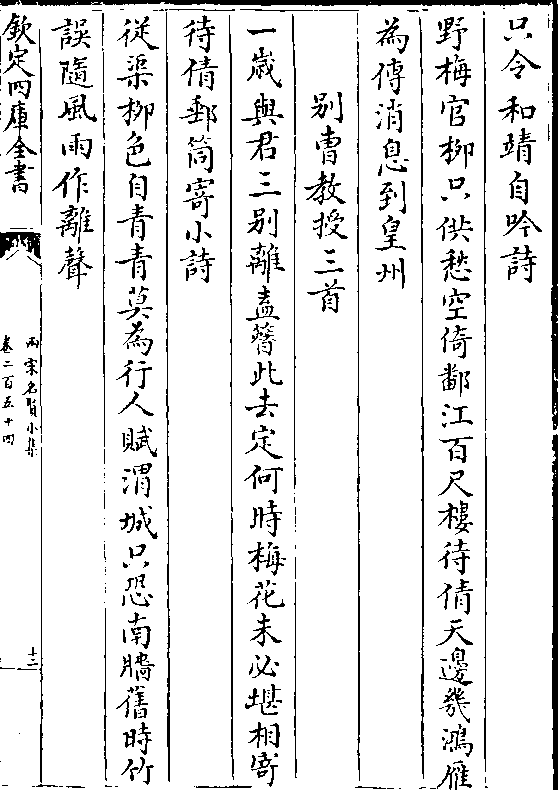 只令和靖自吟詩
野梅官柳只供愁空倚鄱江百尺樓待倩天邊幾鴻雁
為傳消息到皇州
别曹教授三首
一歲與君三别離盍簪此去定何時梅花未必堪相寄
待倩郵筒寄小詩
從渠柳色自青青莫為行人賦渭城只恐南牆舊時竹
誤隨風雨作離聲
欽定四庫全書
兩宋名賢小集
卷二百五十四
十三